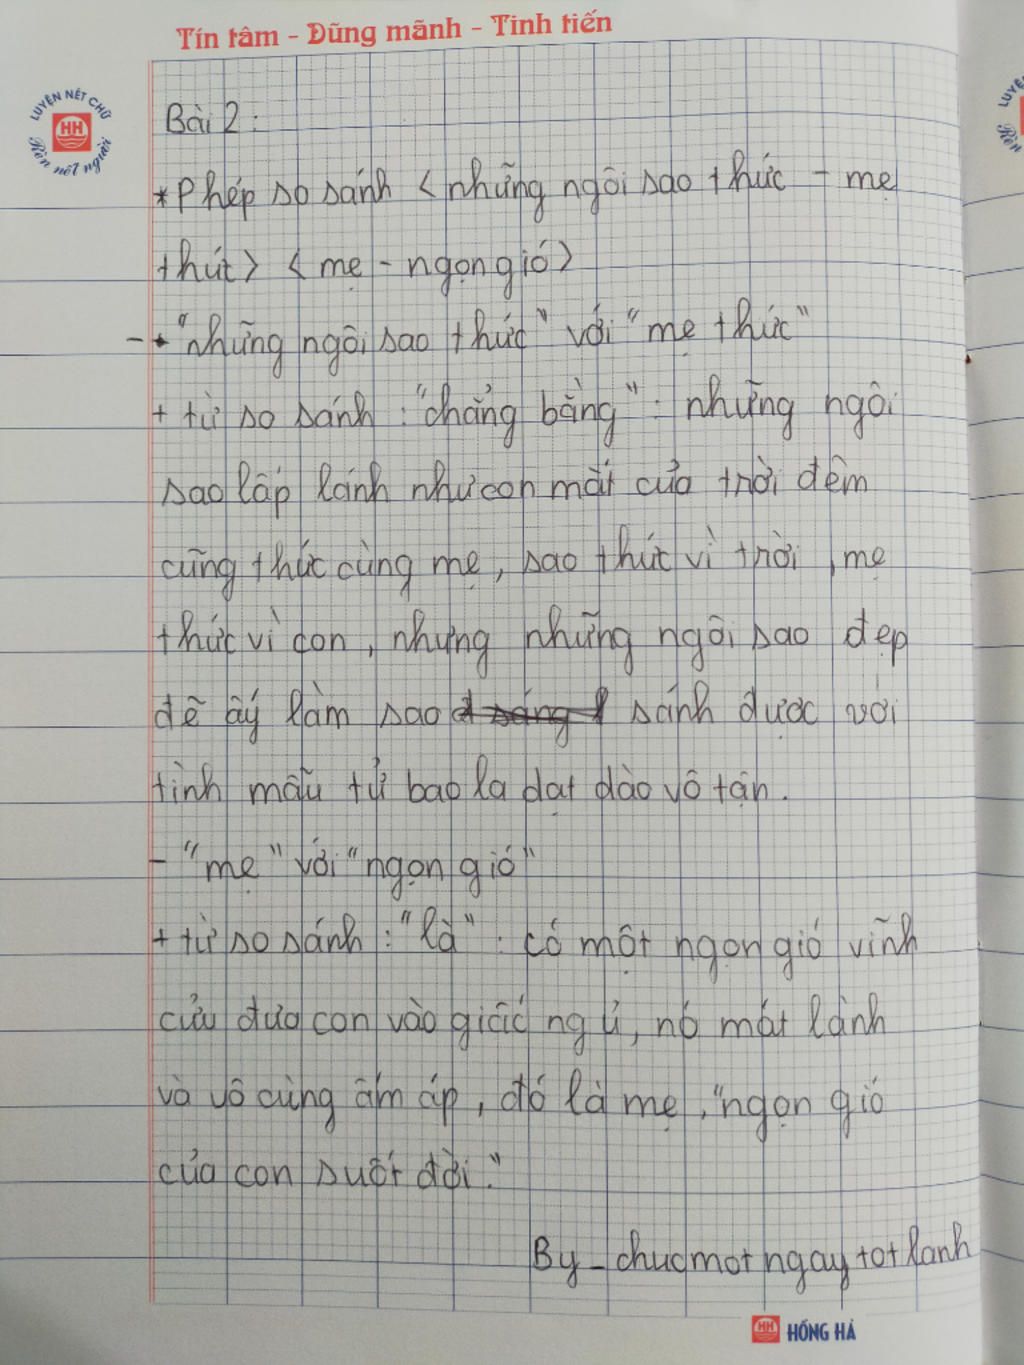 Tín tâm - Dũng mãnh - Tinh tiến
LUYỆN NÉT CHỮ
HH
Rèn nết người
LUYỆN
Rèn
Bài 2:
*Phép so sánh < những ngôi sao thức - mẹ
thức> < mẹ - ngọn gió>
- + "những ngôi sao thức" với "mẹ thức"
+ từ so sánh: "chẳng bằng": những ngôi
sao lấp lánh như con mắt của trời đêm
cũng thức cùng mẹ, sao thức vì trời, mẹ
thức vì con, nhưng những ngôi sao đẹp
đẽ ấy làm sao sánh được với
tình mẫu tử bao la dạt dào vô tận.
- "mẹ" với "ngọn gió"
+ từ so sánh: "là": có một ngọn gió vĩnh
cửu đưa con vào giấc ngủ, nó mát lành
và vô cùng ấm áp, đó là mẹ, "ngọn gió
của con suốt đời."
By_chucmotngaytotlanh
HH HỒNG HÀ